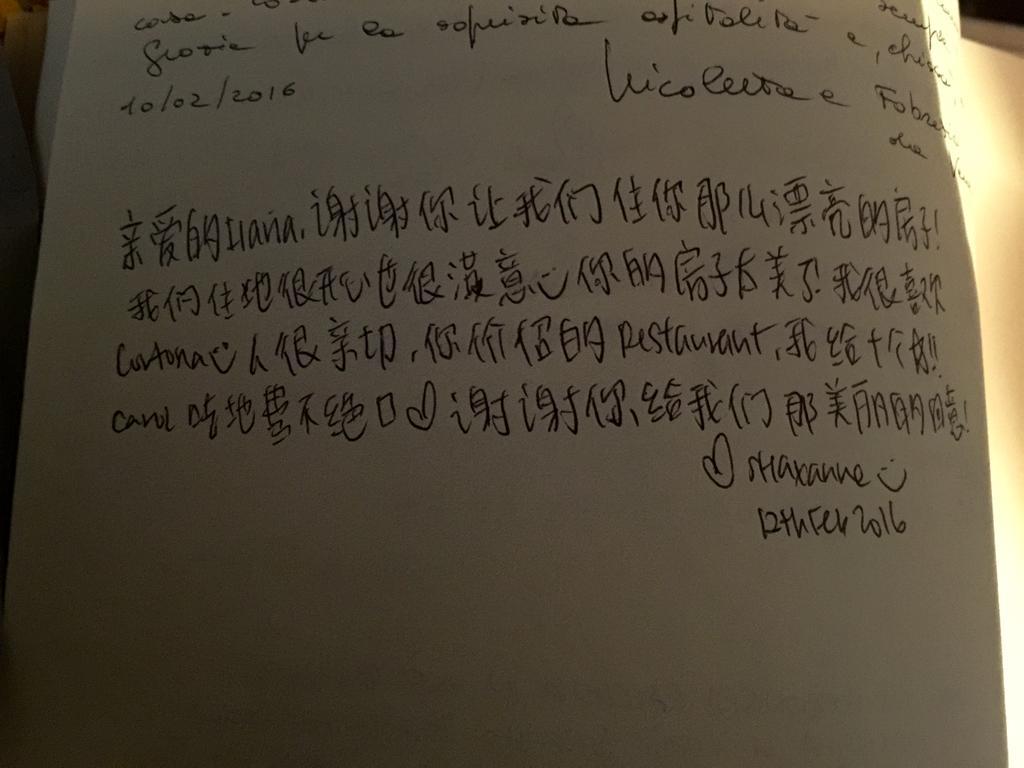 casa -
Grazie per la squisita ospitalità e, chissà
10/02/2016
Nicoletta e
亲爱的Ilaria, 谢谢你让我们住你那么漂亮的房子!
我们住地很开心也很满意 你的房子太美了 我很喜欢
Cortona 人很亲切, 你 的 Restaurant, 我给十个 !!
Carol 吃地赞不绝口 谢谢你, 给我们那美丽的回忆!
12th Feb 2016